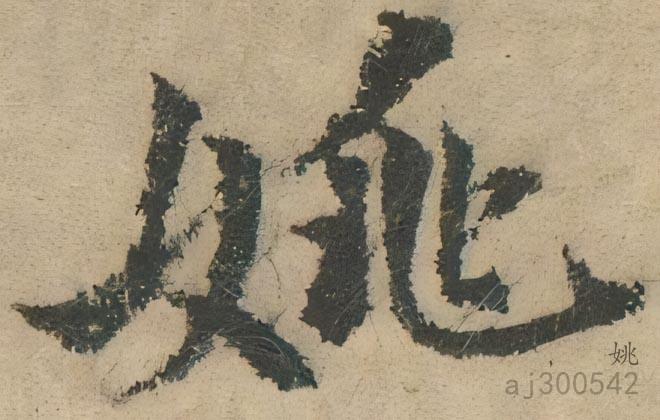 姚
姚
aj300542